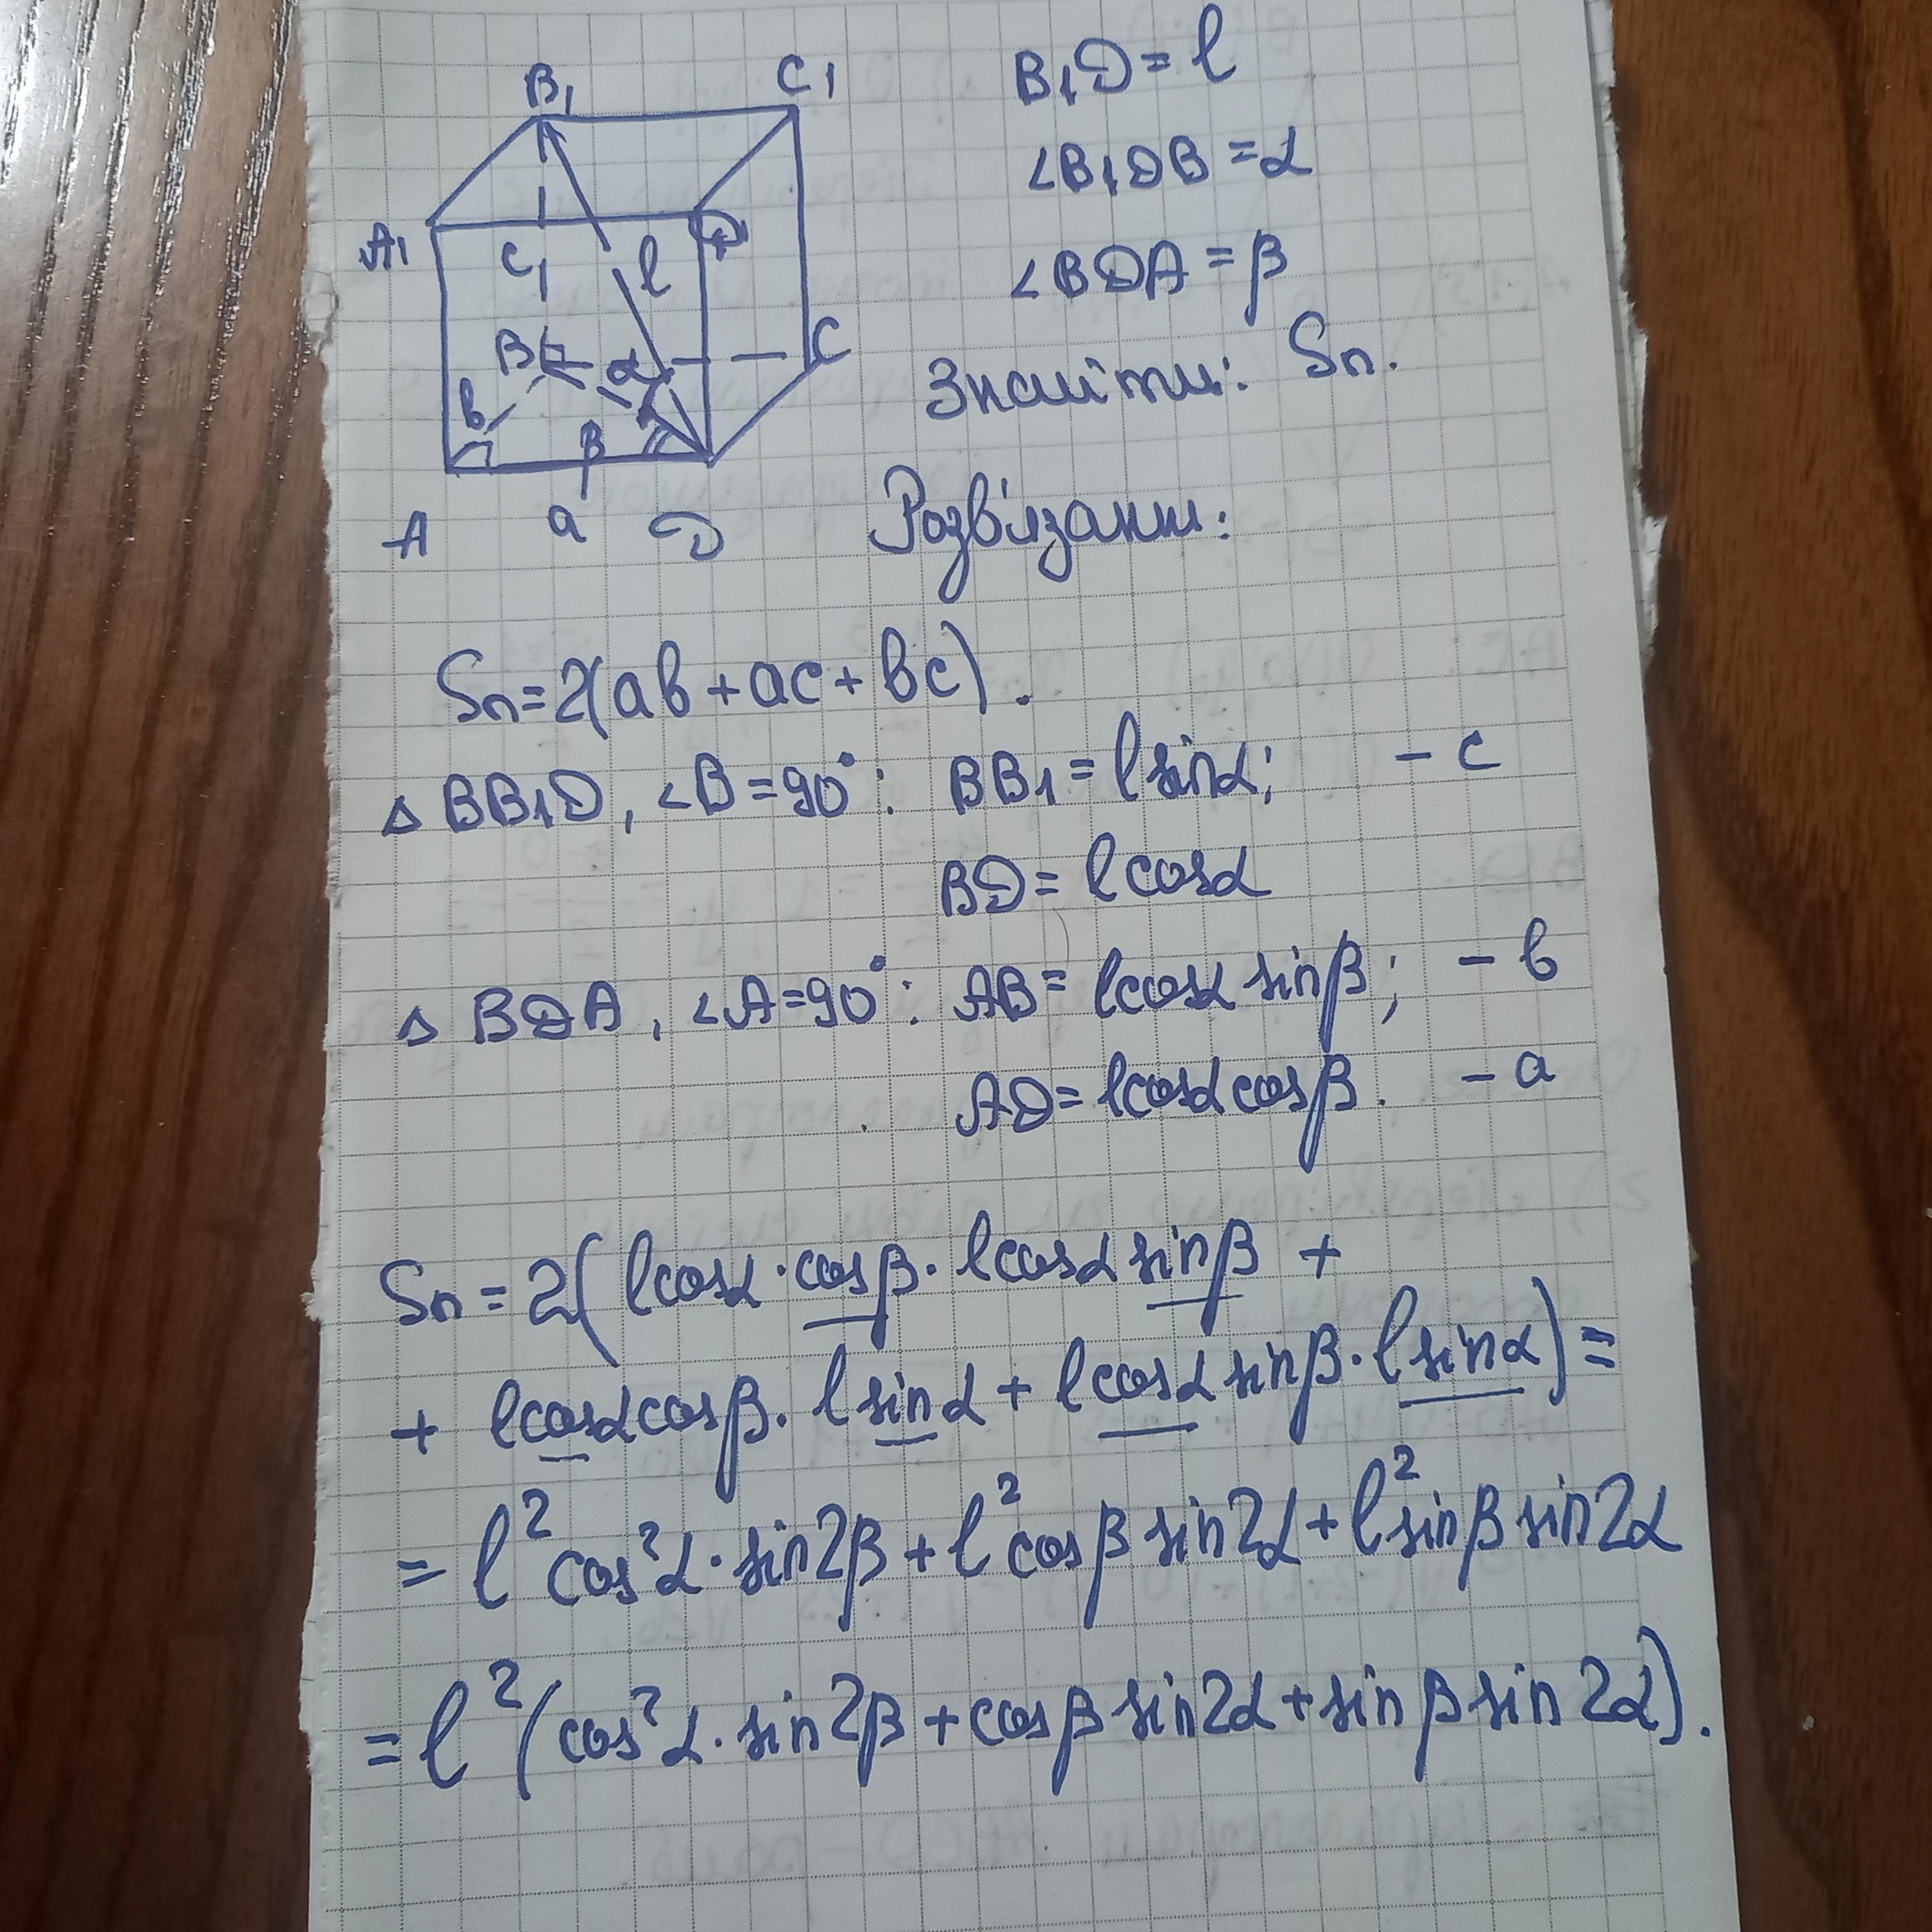 B₁ C₁
B₁D = l
∠B₁DB = α
A₁ C₁ l D₁
∠BDA = β
B α C
Знайти: Sп.
b β
A a D
Розв'язання:
Sп = 2(ab + ac + bc).
△ BB₁D, ∠B = 90°: BB₁ = l sinα; – c
BD = l cosα
△ BDA, ∠A = 90°: AB = l cosα sinβ; – b
AD = l cosα cosβ. – a
Sп = 2( l cosα · cosβ · l cosα sinβ +
+ l cosα cosβ · l sinα + l cosα sinβ · l sinα) =
= l² cos²α · sin2β + l² cosβ sin2α + l² sinβ sin2α
= l² (cos²α · sin2β + cosβ sin2α + sinβ sin2α).